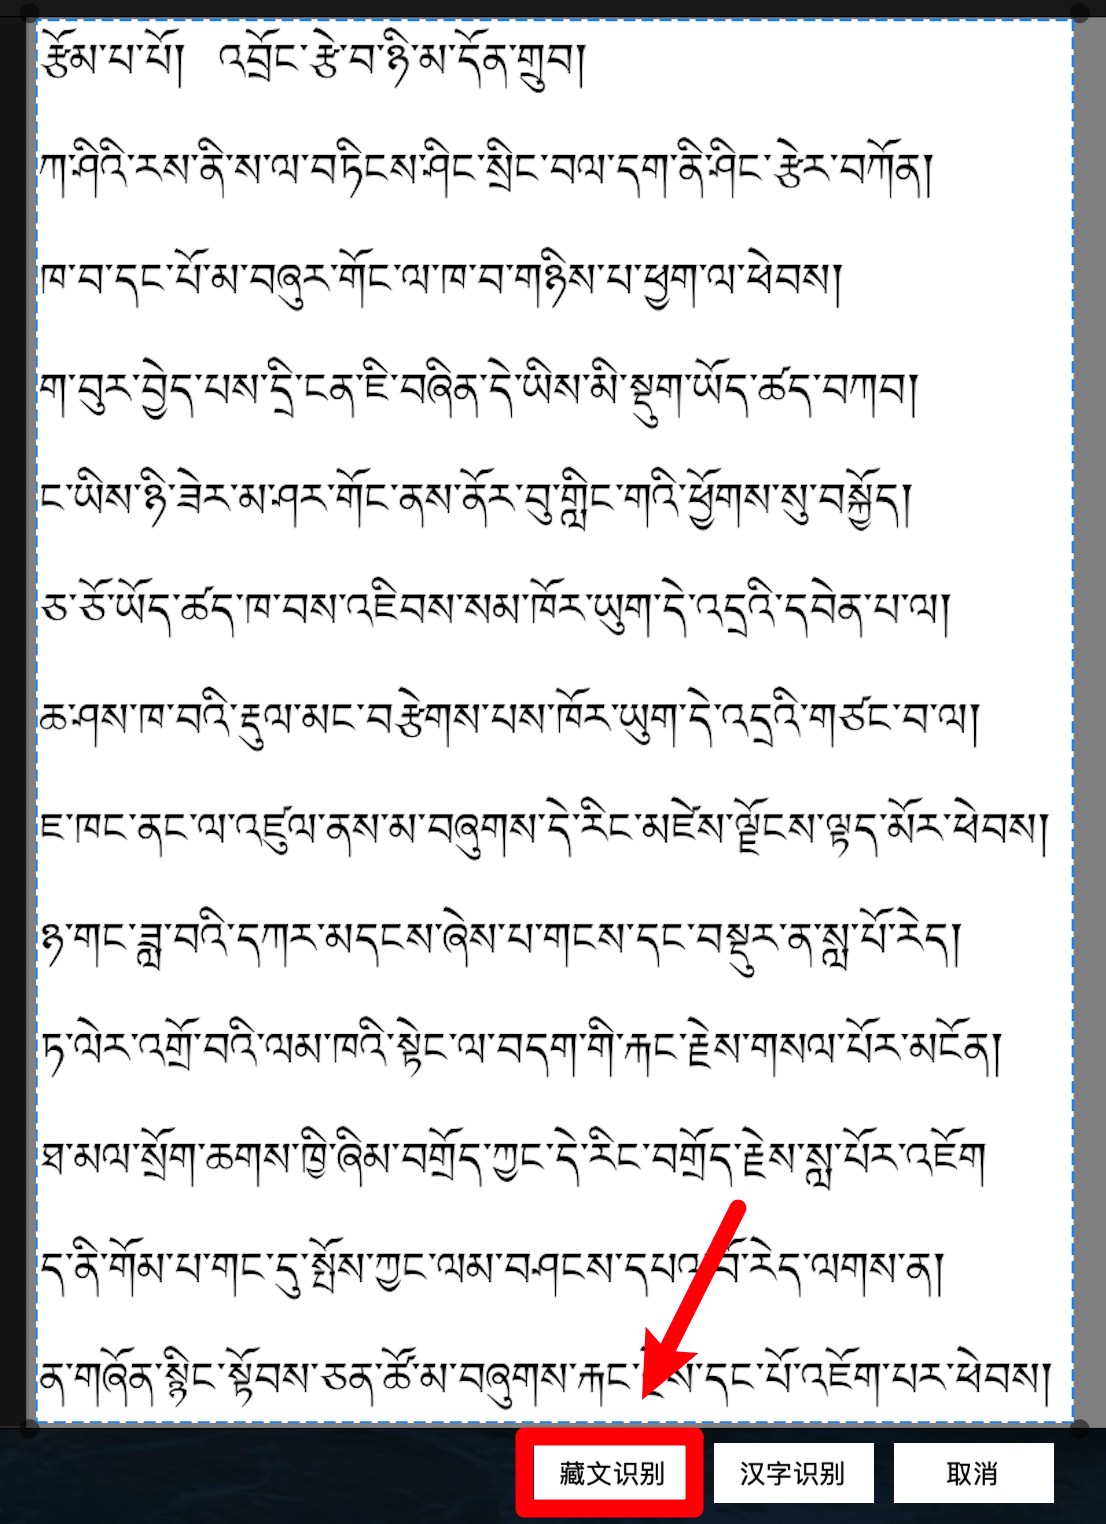 རྩོམ་པ་པོ། འབྲོང་རྩེ་བ་ཉི་མ་དོན་གྲུབ།
ཀ་ཤིའི་རས་ནི་ས་ལ་བཏིངས་ཤིང་སྲིང་བལ་དག་ནི་ཤིང་རྩེར་བཀོན།
ཁ་བ་དང་པོ་མ་བཞུར་གོང་ལ་ཁ་བ་གཉིས་པ་ཕྱག་ལ་ཕེབས།
ག་བུར་བྱེད་པས་དྲི་ངན་ཇི་བཞིན་དེ་ཡིས་མི་སྡུག་ཡོད་ཚད་བཀབ།
ང་ཡིས་ཉི་ཟེར་མ་ཤར་གོང་ནས་ནོར་བུ་གླིང་གའི་ཕྱོགས་སུ་བསྐྱོད།
ཅ་ཅོ་ཡོད་ཚད་ཁ་བས་འཇིབས་སམ་ཁོར་ཡུག་དེ་འདྲའི་དབེན་པ་ལ།
ཆ་ཤས་ཁ་བའི་རྡུལ་མང་བརྩེགས་པས་ཁོར་ཡུག་དེ་འདྲའི་གཙང་བ་ལ།
ཇ་ཁང་ནང་ལ་འཛུལ་ནས་མ་བཞུགས་དེ་རིང་མཛེས་ལྗོངས་ལྟད་མོར་ཕེབས།
ཉ་གང་ཟླ་བའི་དཀར་མདངས་ཞེས་པ་གངས་དང་བསྡུར་ན་སླ་པོ་རེད།
ཏ་ལེར་འགྲོ་བའི་ལམ་ཁའི་སྟེང་ལ་བདག་གི་རྐང་རྗེས་གསལ་པོར་མངོན།
ཐ་མལ་སྲོག་ཆགས་ཁྱི་ཞིམ་བགྲོད་ཀྱང་དེ་རིང་བགྲོད་རྗེས་སླ་པོར་འཇོག
ད་ནི་གོམ་པ་གང་དུ་སྤོས་ཀྱང་ལམ་བཤངས་དཔའ་བོ་རེད་ལགས་ན།
ན་གཞོན་སྙིང་སྟོབས་ཅན་ཚོ་མ་བཞུགས་རྐང་རྗེས་དང་པོ་འཇོག་པར་ཕེབས།
藏文识别 汉字识别 取消